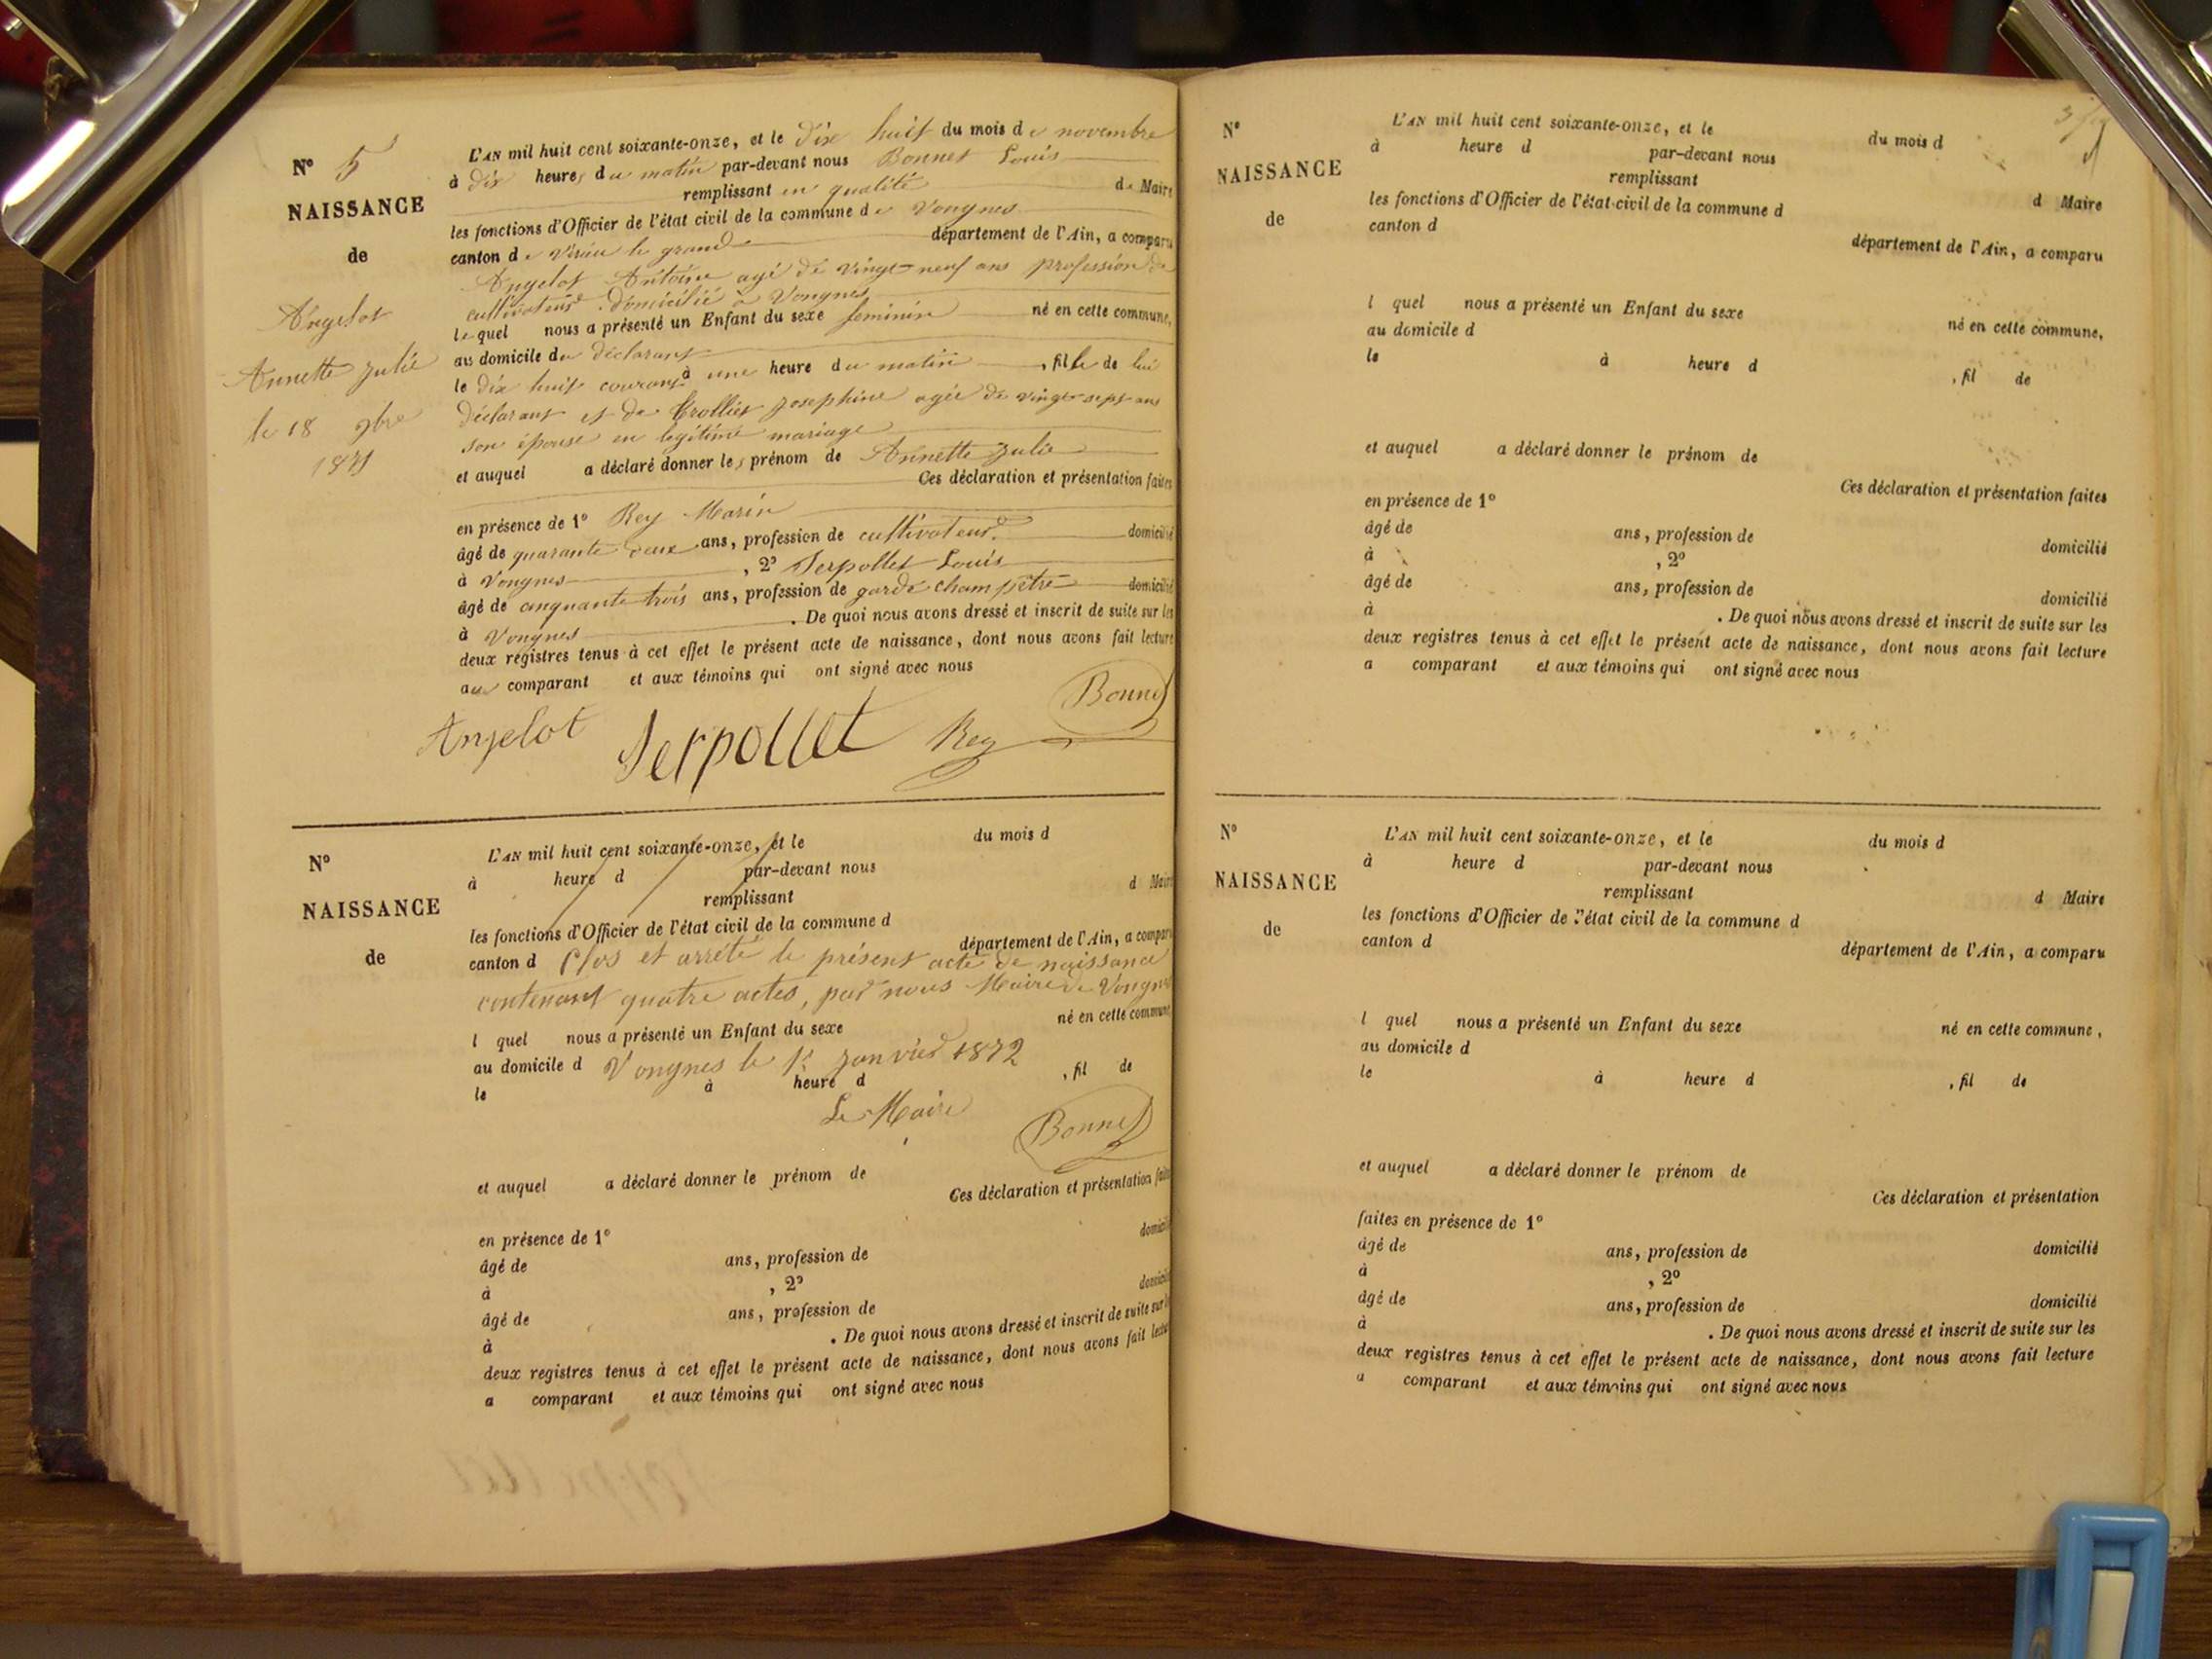 N° 5
NAISSANCE
de
Angelot
Annette Julie
le 18 9bre
1871
L'AN mil huit cent soixante-onze, et le dix huit du mois de novembre
à dix heures du matin par-devant nous Bonnet Louis
remplissant en qualité de Maire
les fonctions d'Officier de l'état civil de la commune de Vongnes
canton de Virieu le grand département de l'Ain, a comparu
Angelot Antoine agé de vingt-neuf ans profession de
cultivateur domicilié à Vongnes
lequel nous a présenté un Enfant du sexe feminin né en cette commune,
au domicile du déclarant
le dix huit courant à une heure du matin, fille de lui
déclarant et de Trollier Josephine agée de vingt-sept ans
son épouse en legitime mariage
et auquel a déclaré donner les prénom de Annette Julie
Ces déclaration et présentation faites
en présence de 1° Rey Marin
âgé de quarante deux ans, profession de cultivateur domicilié
à Vongnes, 2° Serpollet Louis
âgé de cinquante trois ans, profession de garde champêtre domicilié
à Vongnes. De quoi nous avons dressé et inscrit de suite sur les
deux registres tenus à cet effet le présent acte de naissance, dont nous avons fait lecture
au comparant et aux témoins qui ont signé avec nous
Angelot Serpollet Rey Bonnet
N°
NAISSANCE
de
L'AN mil huit cent soixante-onze, et le du mois d
à heure d par-devant nous
remplissant d Maire
les fonctions d'Officier de l'état civil de la commune d
canton d département de l'Ain, a comparu
Clos et arrêté le présent acte de naissance
contenant quatre actes, par nous Maire de Vongnes
l quel nous a présenté un Enfant du sexe né en cette commune
au domicile d
Vongnes le 1er Janvier 1872
le à heure d , fil de
Le Maire
Bonnet
et auquel a déclaré donner le prénom de
Ces déclaration et présentation faites
en présence de 1°
âgé de ans, profession de domicilié
à , 2°
âgé de ans, profession de domicilié
à . De quoi nous avons dressé et inscrit de suite sur les
deux registres tenus à cet effet le présent acte de naissance, dont nous avons fait lecture
a comparant et aux témoins qui ont signé avec nous
N°
NAISSANCE
de
L'AN mil huit cent soixante-onze, et le du mois d
à heure d par-devant nous
remplissant d Maire
les fonctions d'Officier de l'état civil de la commune d
canton d département de l'Ain, a comparu
l quel nous a présenté un Enfant du sexe né en cette commune,
au domicile d
le à heure d , fil de
et auquel a déclaré donner le prénom de
Ces déclaration et présentation faites
en présence de 1°
âgé de ans, profession de domicilié
à , 2°
âgé de ans, profession de domicilié
à . De quoi nous avons dressé et inscrit de suite sur les
deux registres tenus à cet effet le présent acte de naissance, dont nous avons fait lecture
a comparant et aux témoins qui ont signé avec nous
N°
NAISSANCE
de
L'AN mil huit cent soixante-onze, et le du mois d
à heure d par-devant nous
remplissant d Maire
les fonctions d'Officier de l'état civil de la commune d
canton d département de l'Ain, a comparu
l quel nous a présenté un Enfant du sexe né en cette commune,
au domicile d
le à heure d , fil de
et auquel a déclaré donner le prénom de
Ces déclaration et présentation
faites en présence de 1°
âgé de ans, profession de domicilié
à , 2°
âgé de ans, profession de domicilié
à . De quoi nous avons dressé et inscrit de suite sur les
deux registres tenus à cet effet le présent acte de naissance, dont nous avons fait lecture
a comparant et aux témoins qui ont signé avec nous